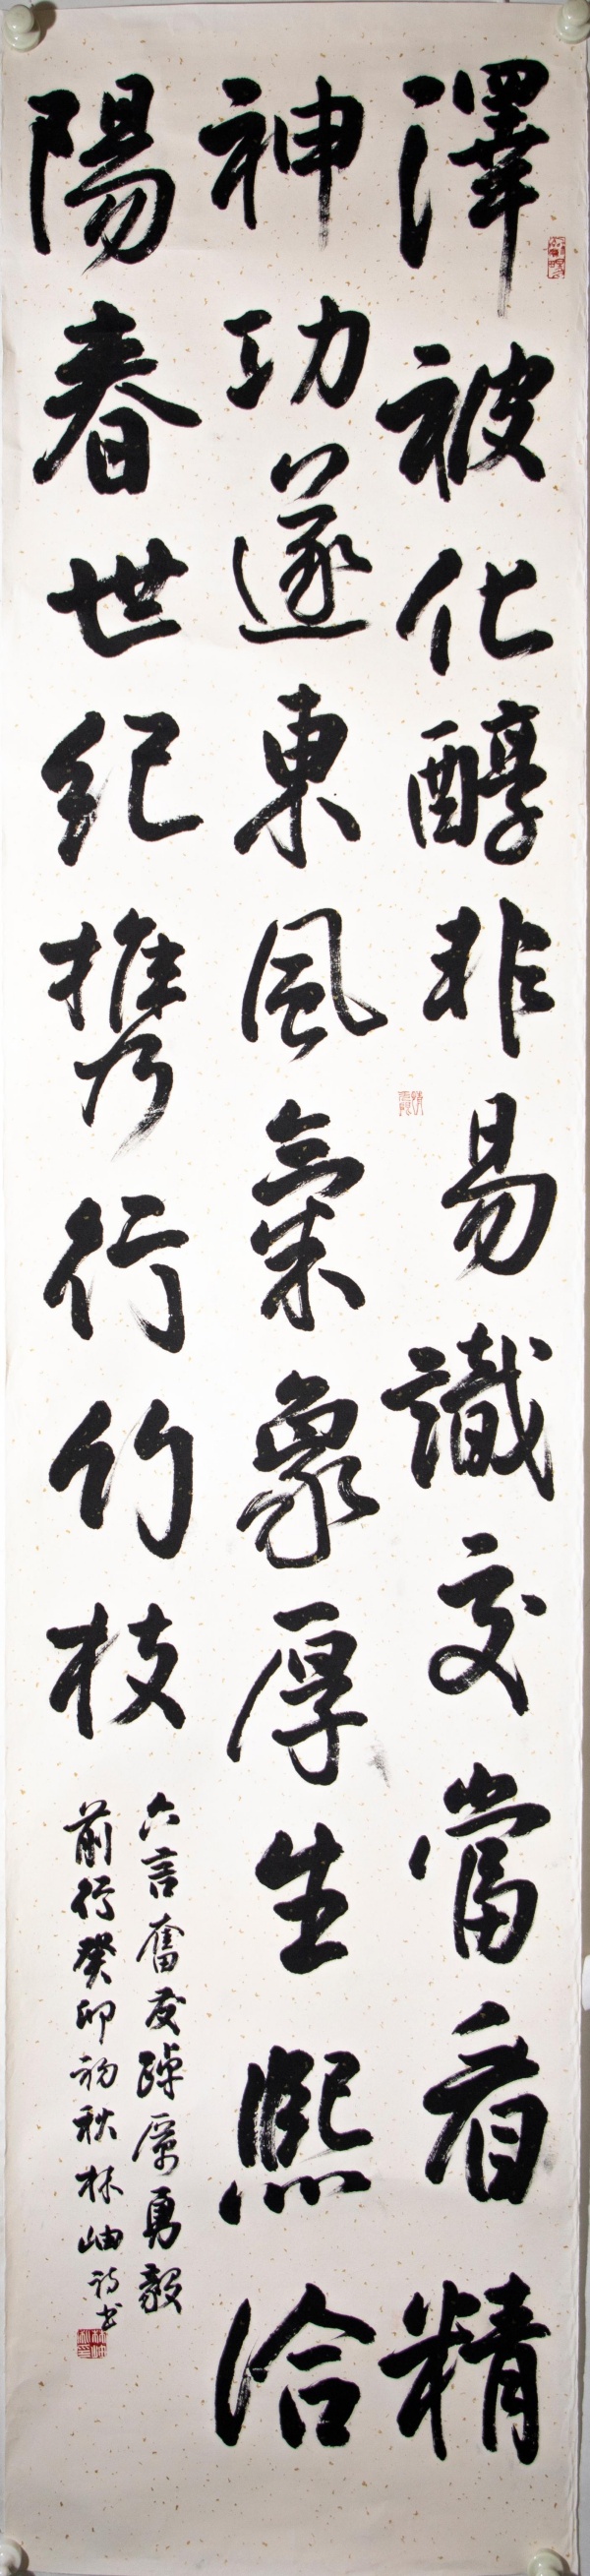 澤被化醇非易識交當看精
神功遂東風氣象厚生熙洽
陽春世紀携行竹枝
六言奮發踔厲勇毅
前行癸卯初秋林岫詩书